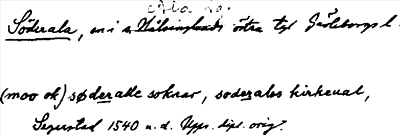 Söderala, sn i n Hälsinglands östra tgl Gävleborgs l.
(moo ok) søderalle soknar, soderales kirkeval,
Segerstad 1540 u. d. Upps. dipl. orig.